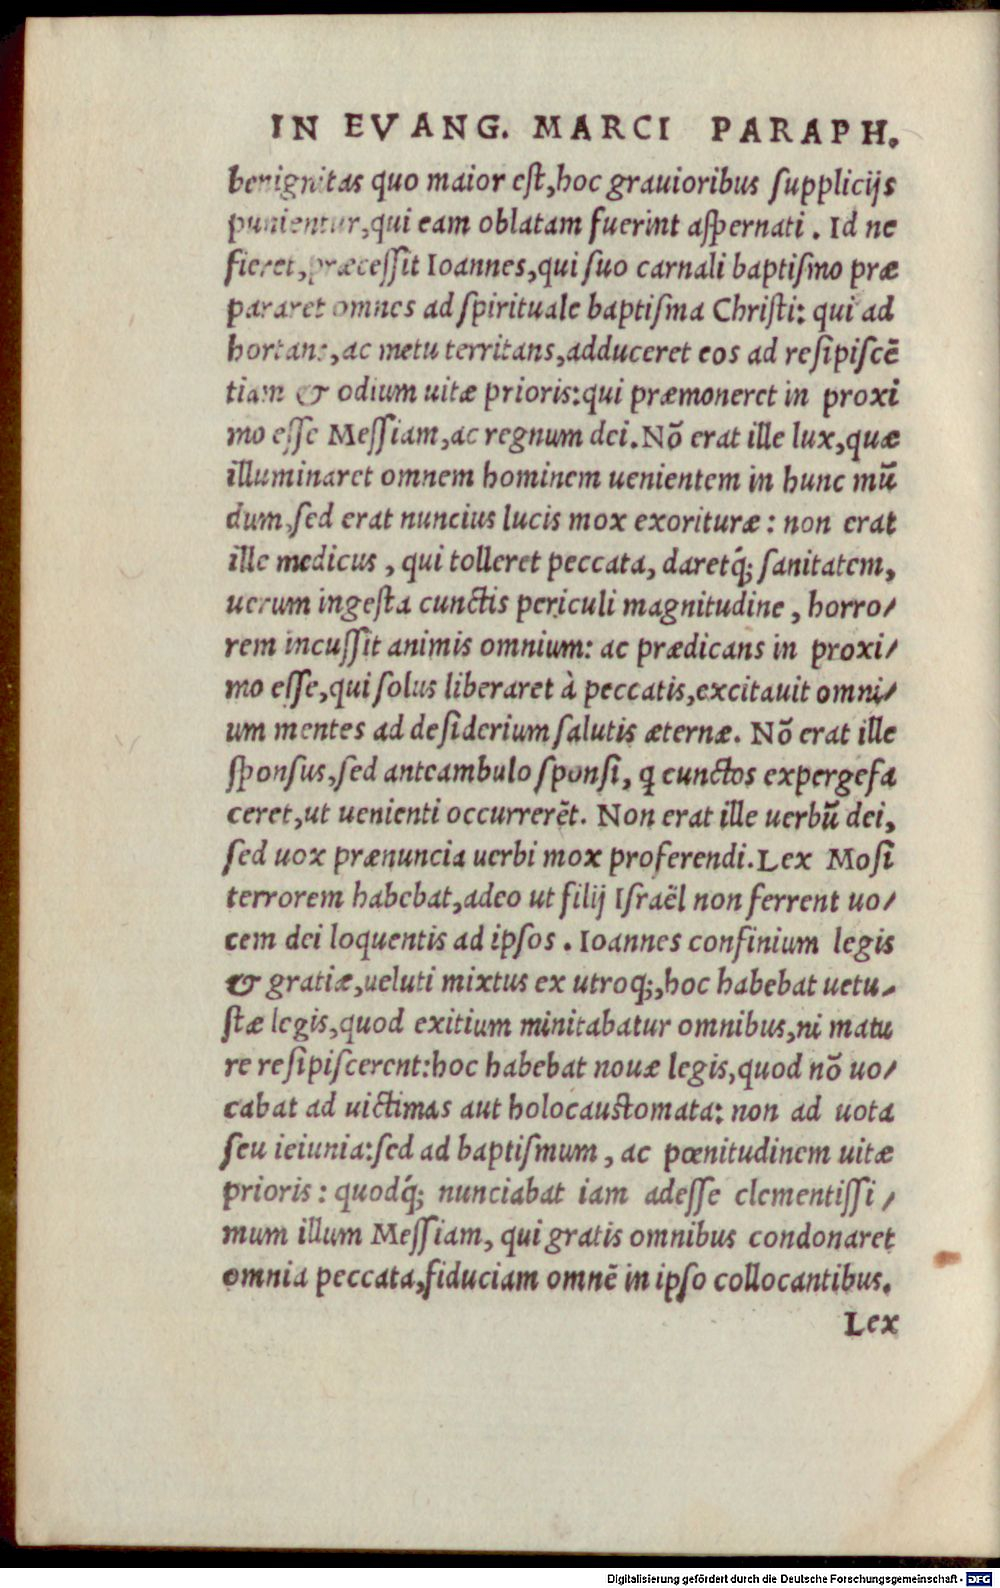 IN EVANG. MARCI PARAPH.
benignitas quo maior est,hoc grauioribus supplicijs
punientur,qui eam oblatam fuerint aspernati. Id ne
fieret,præcessit Ioannes,qui suo carnali baptismo præ
pararet omnes ad spirituale baptisma Christi: qui ad
hortans,ac metu territans,adduceret eos ad resipiscē
tiam & odium uitæ prioris:qui præmoneret in proxi
mo esse Messiam,ac regnum dei.Nō erat ille lux,quæ
illuminaret omnem hominem uenientem in hunc mū
dum,sed erat nuncius lucis mox exorituræ: non erat
ille medicus, qui tolleret peccata, daretq́; sanitatem,
uerum ingesta cunctis periculi magnitudine, horro/
rem incussit animis omnium: ac prædicans in proxi/
mo esse,qui solus liberaret à peccatis,excitauit omni/
um mentes ad desiderium salutis æternæ. Nō erat ille
sponsus,sed anteambulo sponsi, q cunctos expergefa
ceret,ut uenienti occurrerēt. Non erat ille uerbū dei,
sed uox prænuncia uerbi mox proferendi.Lex Mosi
terrorem habebat,adeo ut filij Israël non ferrent uo/
cem dei loquentis ad ipsos. Ioannes confinium legis
& gratiæ,ueluti mixtus ex utroq;,hoc habebat uetu/
stæ legis,quod exitium minitabatur omnibus,ni matu
re resipiscerent:hoc habebat nouæ legis,quod nō uo/
cabat ad uictimas aut holocaustomata: non ad uota
seu ieiunia:sed ad baptismum, ac pœnitudinem uitæ
prioris: quodq́; nunciabat iam adesse clementissi/
mum illum Messiam, qui gratis omnibus condonaret
omnia peccata,fiduciam omnē in ipso collocantibus.
Lex
Digitalisierung gefördert durch die Deutsche Forschungsgemeinschaft - DFG